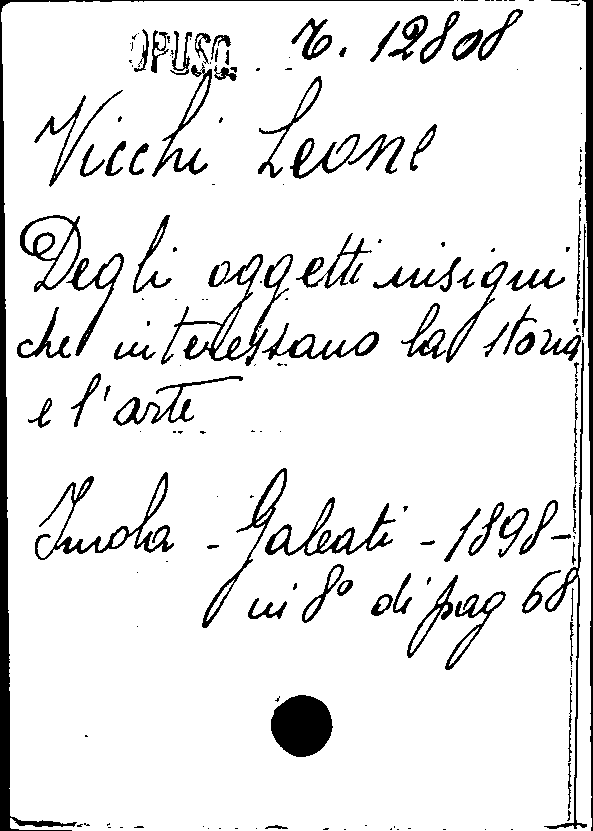 OPUSC. T. 12808
Vicchi Leone
Degli oggetti insigni
che interessano la storia
e l'arte
Imola - Galeati - 1898 -
in 8° di pag 68